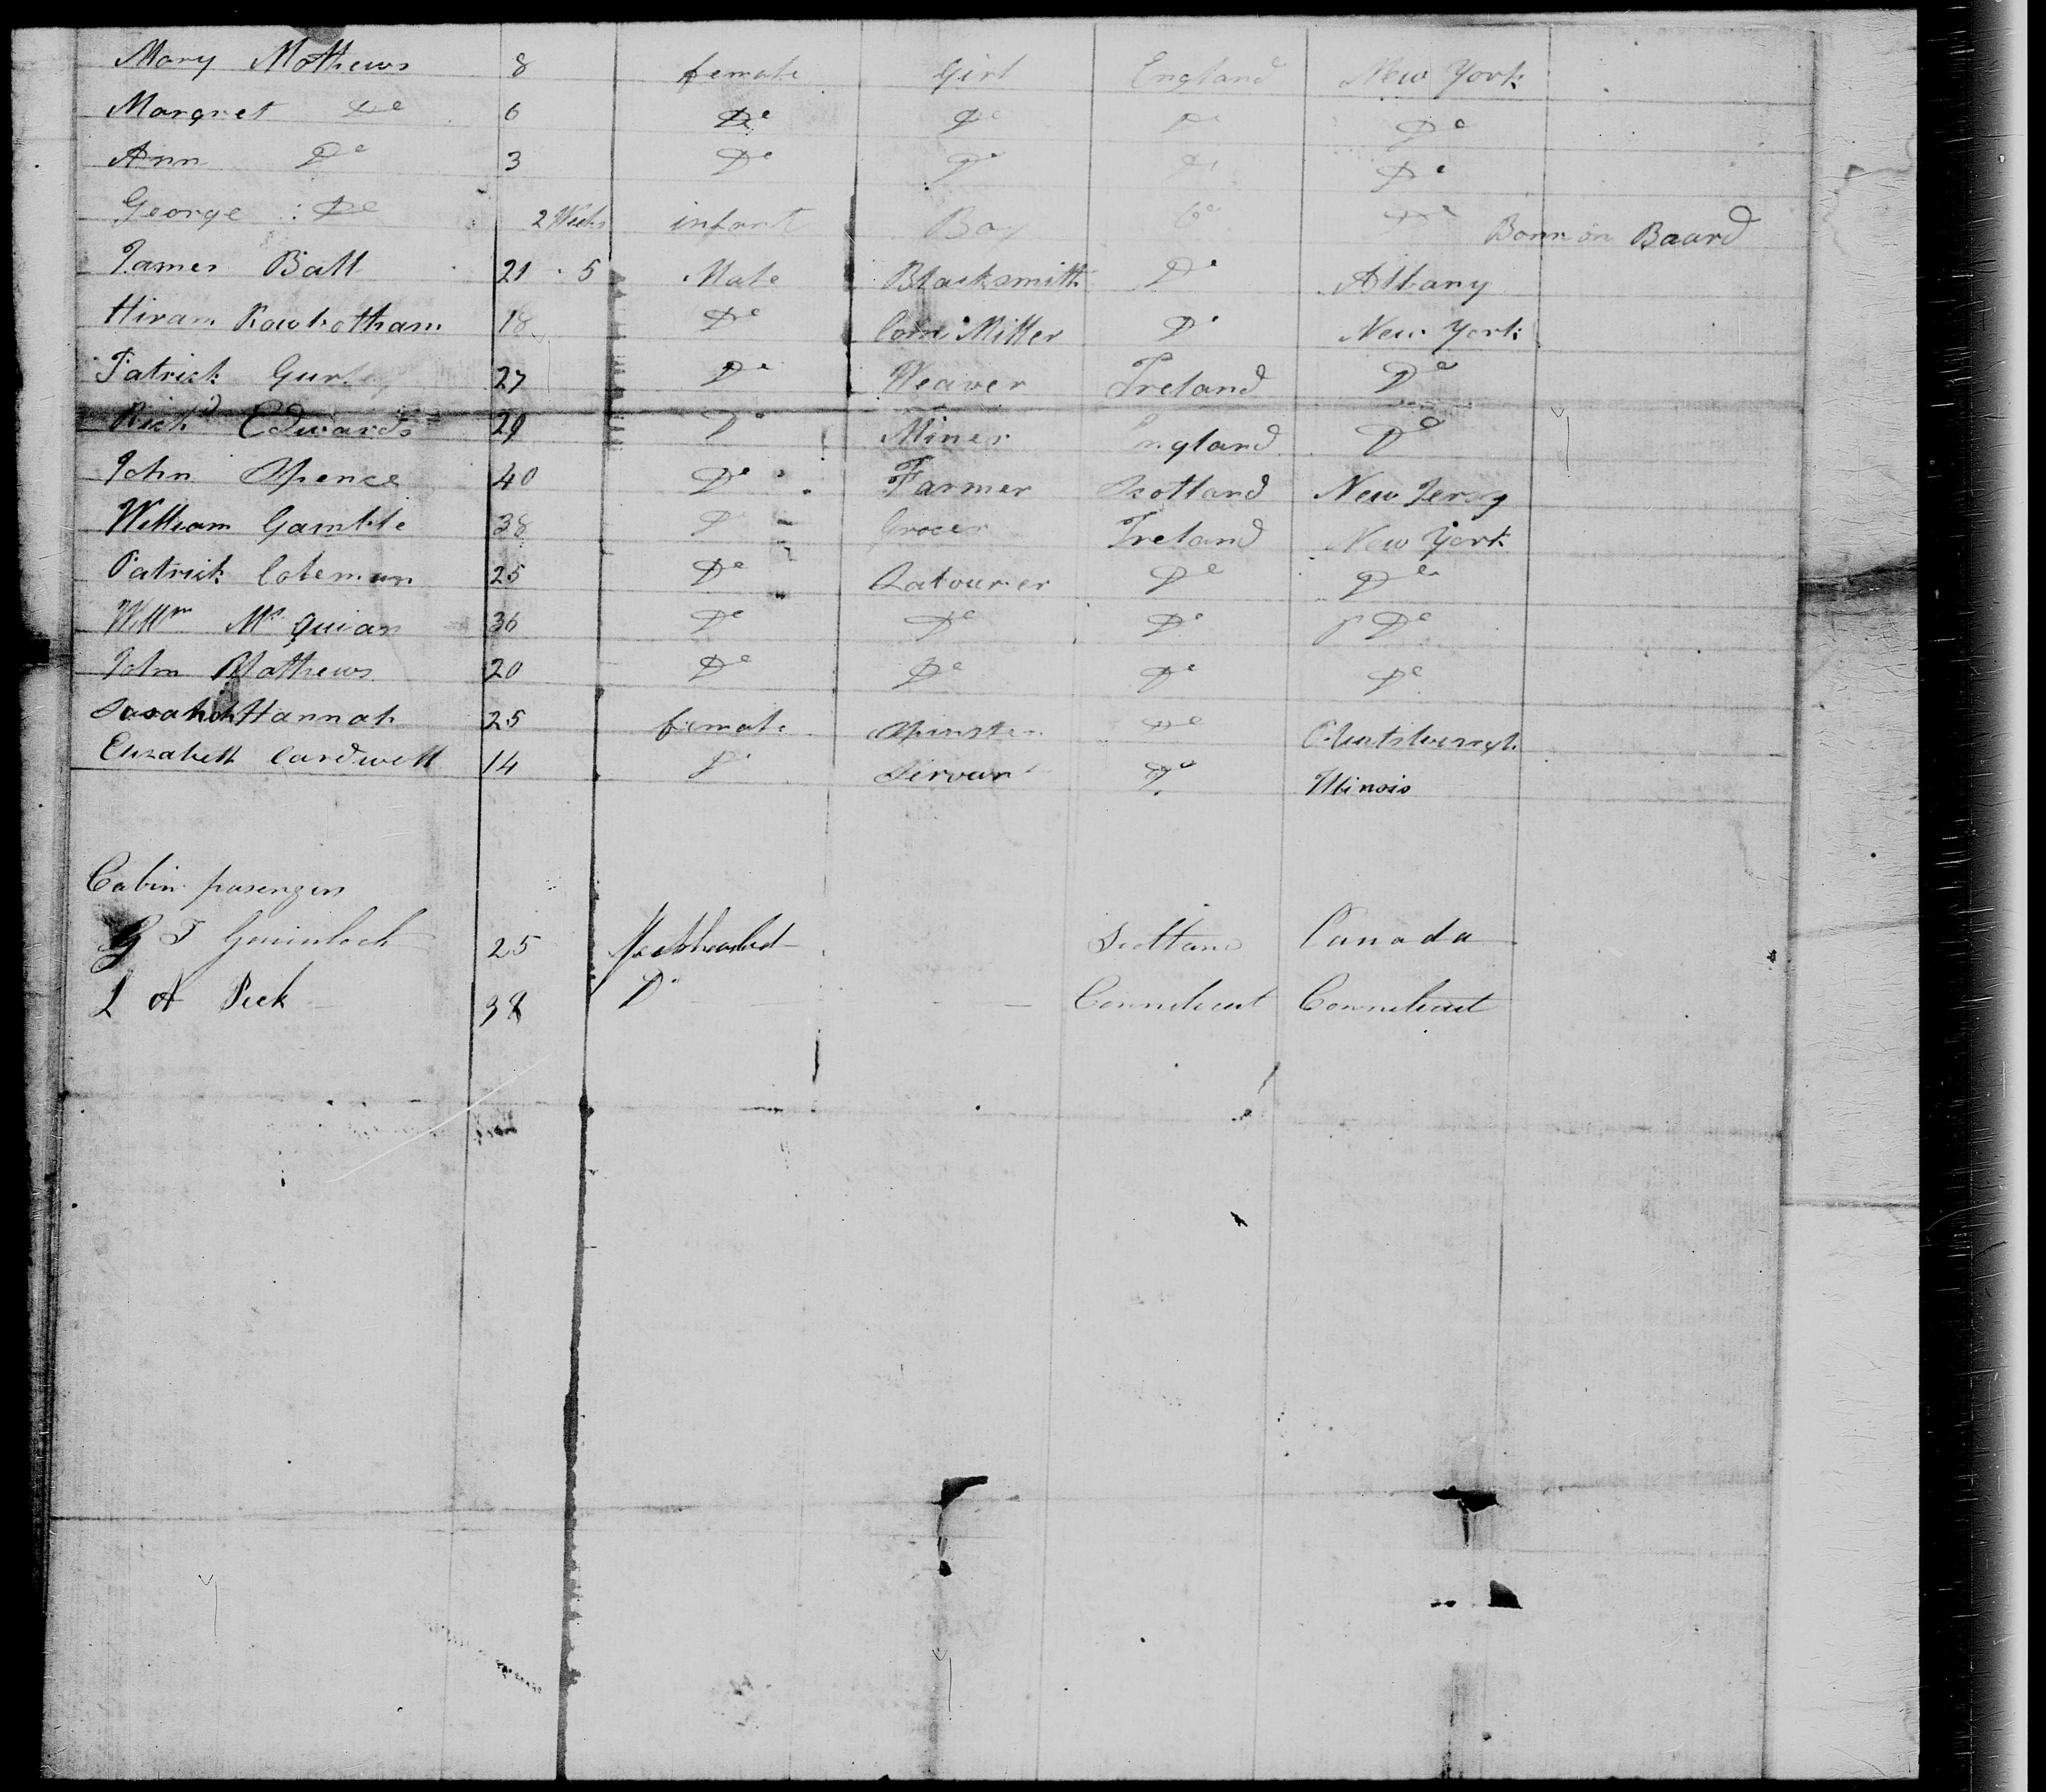 Mary Mathews 8 female Girl England New York
Margret Do 6 Do Do Do Do
Ann Do 3 Do Do Do Do
George Do 2 Weeks infant Boy Do Do Born on Board
James Ball 21 5 Male Blacksmith Do Albany
Hiram Rowbotham 18 Do Corn Miller Do New York
Patrick 27 Do Weaver Ireland Do
Richd Edwards 29 Do Miner England Do
John Spence 40 Do Farmer Scotland New Jersy
William Gamble 38 Do Grocer Ireland New York
Patrick Coleman 25 Do Labourer Do Do
Willm Mc Quian 36 Do Do Do Do
John Mathews 20 Do Do Do Do
Sarah Hannah 25 female Spinster Do
Elizabeth Cardwell 14 Do Servant Do Illinois
Cabin pasengers
G T 25 Scotland Canada
L A Peck 38 Do Conneticut Conneticut